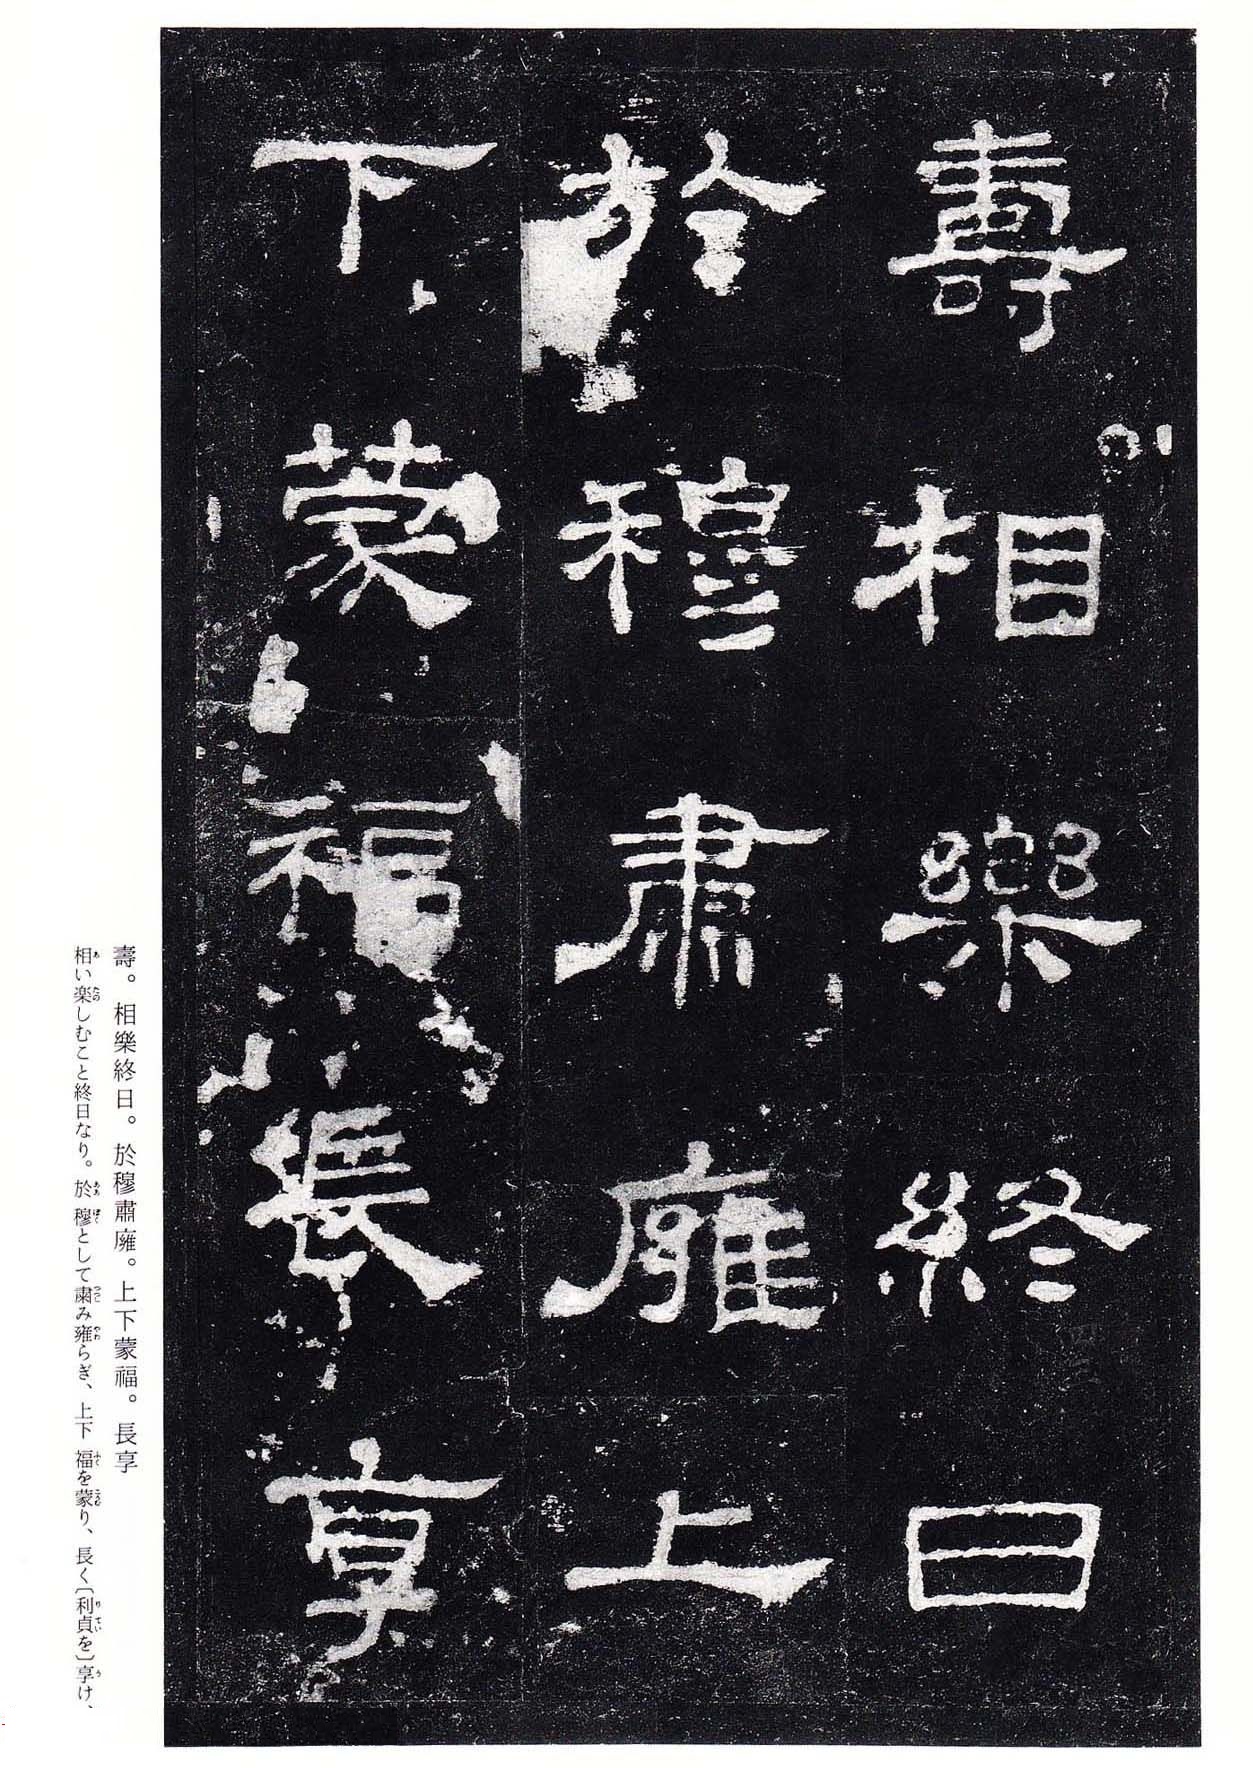 壽相樂終日
於穆肅廱上
下蒙福長享
壽。相樂終日。於穆肅廱。上下蒙福。長享
相い楽しむこと終日なり。於穆として粛み雍らぎ、上下福を蒙り、長く〔利貞を〕享け、